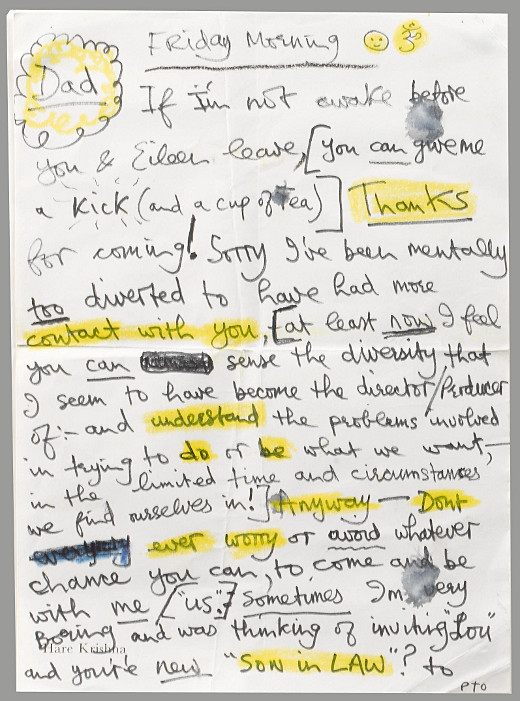 Friday Morning ॐ
Dad
If I'm not awake before
you & Eileen leave, [you can give me
a KICK (and a cup of tea)] Thanks
for coming! Sorry I've been mentally
too diverted to have had more
contact with you, [at least now I feel
you can sense the diversity that
I seem to have become the director/Producer
of:- and understand the problems involved
in trying to do or be what we want,-
in the limited time and circumstances
we find ourselves in!] Anyway — Dont
ever worry or avoid whatever
chance you can, to come and be
with me ["us"] Sometimes I'm very
Boring and was thinking of inviting "Lou"
Hare Krishna
and you're new "Son in LAW"? to
PTO